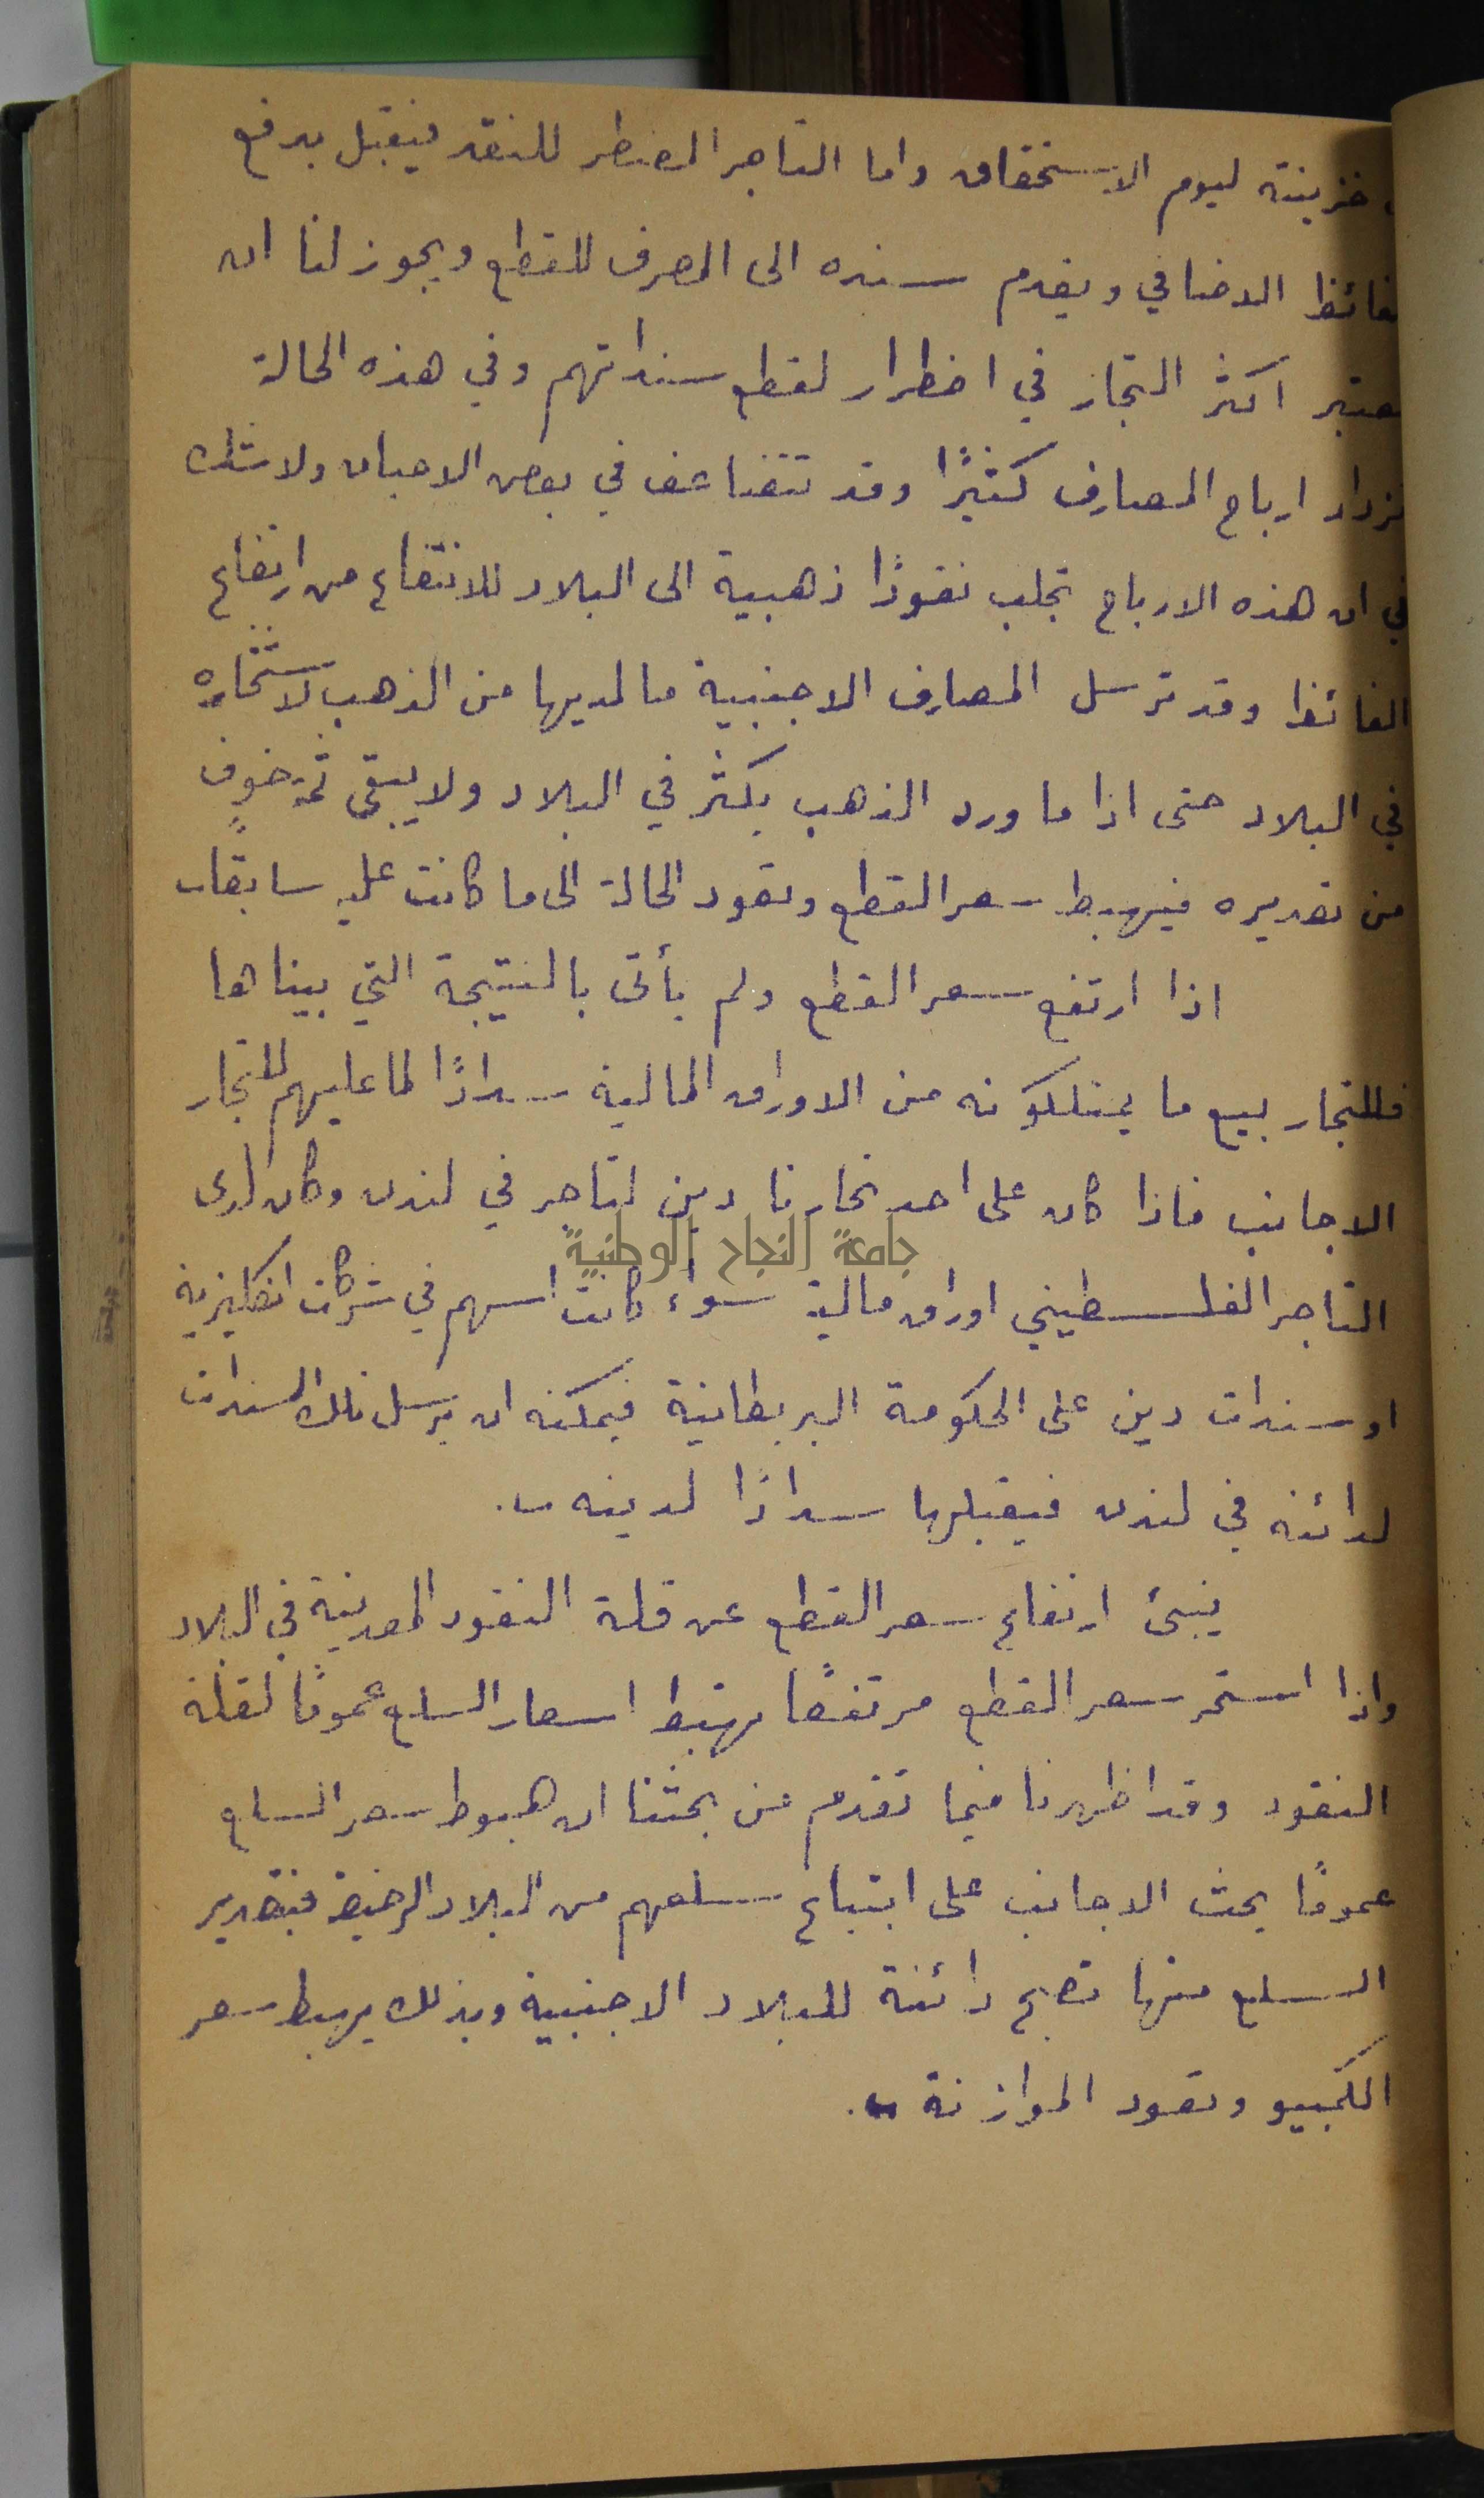 خزينته ليوم الاستحقاق واما التاجر المضطر للنقد فيقبل بدفع
الفائظ الاضافي ويقدم سنده الى المصرف للقطع ويجوز لنا ان
نعتبر اكثر التجار في اضطرار لقطع سنداتهم وفي هذه الحالة
تزداد ارباح المصارف كثيرًا وقد تتضاعف في بعض الاحيان ولا شك
في ان هذه الارباح تجلب نقودًا ذهبية الى البلاد للانتفاع من ارتفاع
الفائظ وقد ترسل المصارف الاجنبية ما لديها من الذهب لاستثماره
في البلاد حتى اذا ما ورد الذهب يكثر في البلاد ولا يبقى ثمة خوف
من تصديره فيهبط سعر القطع وتعود الحالة الى ما كانت عليه سابقًا
اذا ارتفع سعر القطع ولم يأتى بالنتيجة التي بيناها
فللتجار بيع ما يمتلكونه من الاوراق المالية سدادًا لما عليهم للتجار
الاجانب فاذا كان على احد تجارنا دين لتاجر في لندن وكان لدى
جامعة النجاح الوطنية
التاجر الفلسطيني اوراق مالية سواء كانت اسهم في شركات انكليزية
او سندات دين على الحكومة البريطانية فيمكنه ان يرسل تلك السندات
لدائنه في لندن فيقبلها سدادًا لدينه .
ينبئ ارتفاع سعر القطع عن قلة النقود المعدنية في البلاد
واذا استمر سعر القطع مرتفعًا تهبط اسعار السلع عمومًا لقلة
النقود وقد اظهرنا فيما تقدم من بحثنا ان هبوط سعر السلع
عمومًا يحث الاجانب على ابتياع سلعهم من البلاد الرخيصة فبتصدير
السلع منها تصبح دائنة للبلاد الاجنبية وبذلك يهبط سعر
الكمبيو وتعود الموازنة .